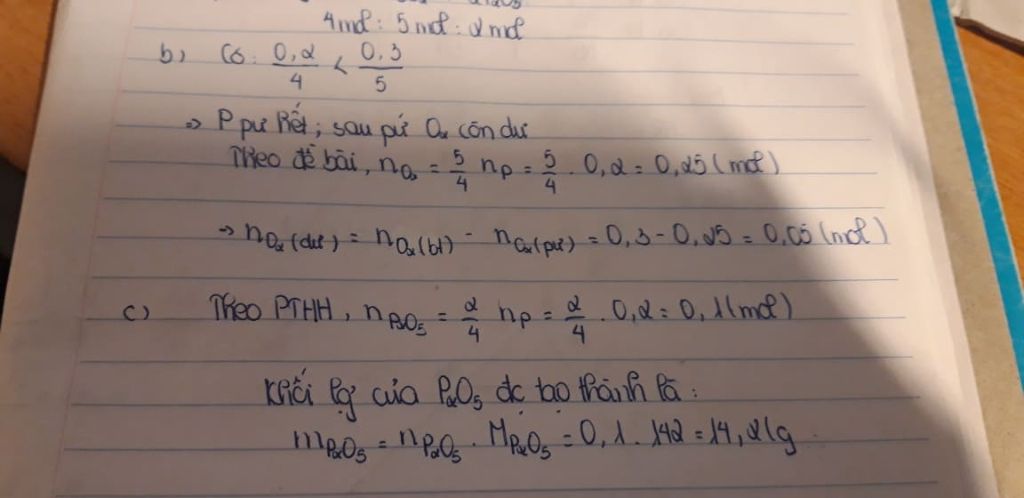 4mol : 5mol : 2mol
b) Có: 0,2/4 < 0,3/5
=> P pư hết; sau pứ O2 còn dư
Theo đề bài, nO2 = 5/4 nP = 5/4 . 0,2 = 0,25 (mol)
-> nO2(dư) = nO2(bđ) - nO2(pư) = 0,3 - 0,25 = 0,05 (mol)
c) Theo PTHH, nP2O5 = 2/4 nP = 2/4 . 0,2 = 0,1 (mol)
Khối lg của P2O5 đc tạo thành là:
mP2O5 = nP2O5 . MP2O5 = 0,1 . 142 = 14,2(g